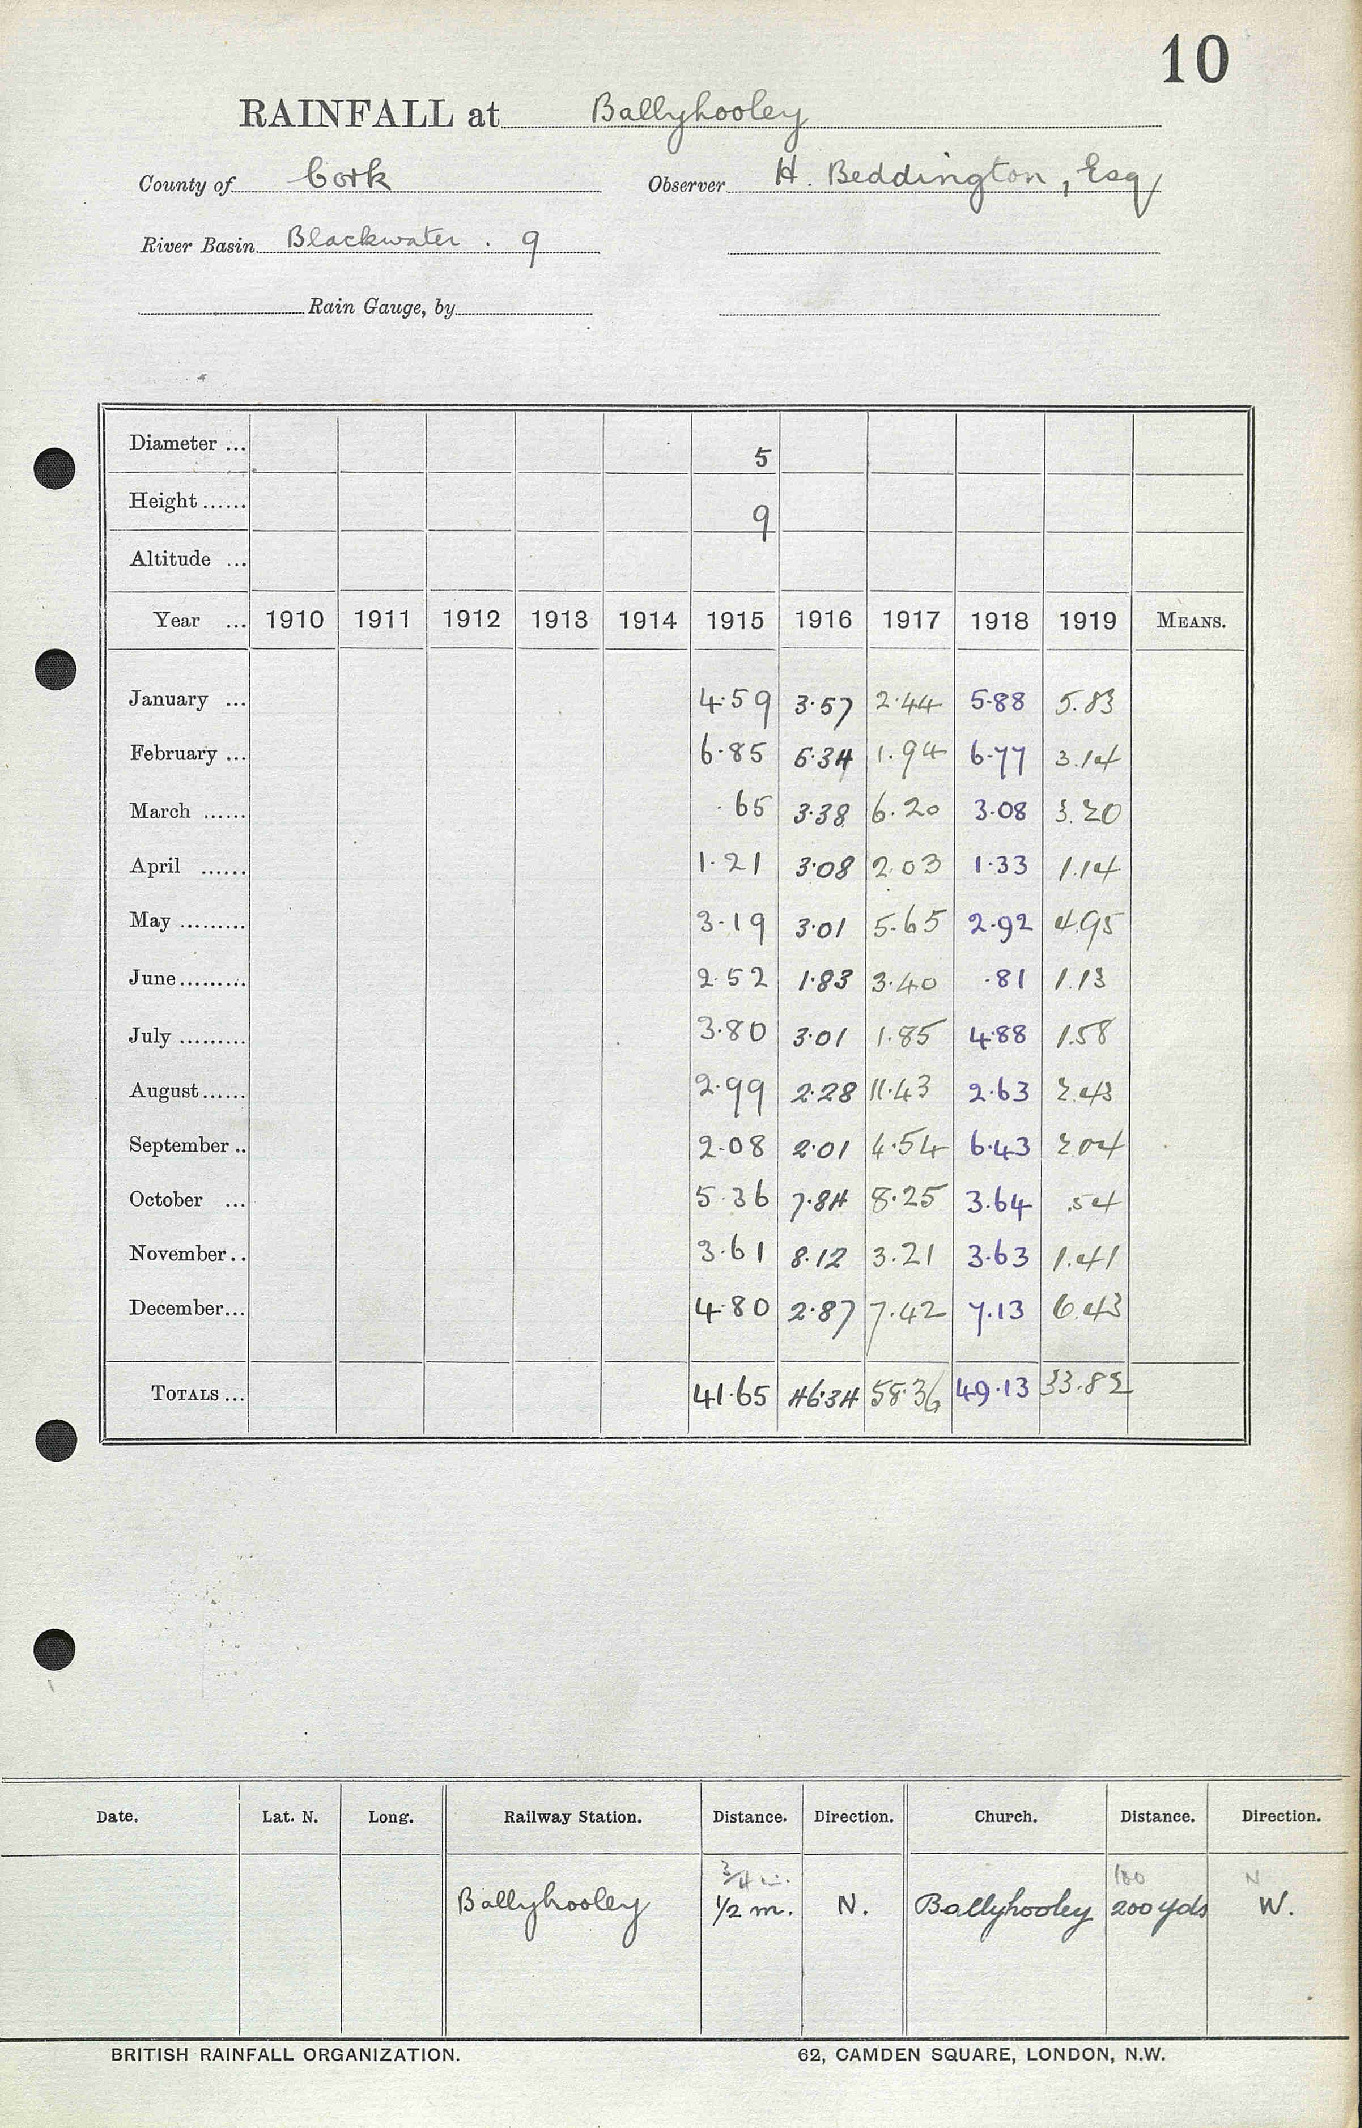 10
RAINFALL at Ballyhooley
County of Cork Observer H. Beddington, Esq
River Basin Blackwater . 9
Rain Gauge, by
Diameter ... 5
Height ...... 9
Altitude ...
Year ... 1910 1911 1912 1913 1914 1915 1916 1917 1918 1919 MEANS.
January ... 4.59 3.57 2.44 5.88 5.83
February ... 6.85 5.34 1.94 6.77 3.14
March ...... .65 3.38 6.20 3.08 3.20
April ...... 1.21 3.08 2.03 1.33 1.14
May ......... 3.19 3.01 5.65 2.92 4.95
June ......... 2.52 1.83 3.40 .81 1.13
July ......... 3.80 3.01 1.85 4.88 1.58
August ...... 2.99 2.28 11.43 2.63 2.43
September .. 2.08 2.01 4.54 6.43 2.04
October ... 5.36 7.84 8.25 3.64 .54
November .. 3.61 8.12 3.21 3.63 1.41
December ... 4.80 2.87 7.42 7.13 6.43
TOTALS ... 41.65 46.34 58.36 49.13 33.82
Date. Lat. N. Long. Railway Station. Distance. Direction. Church. Distance. Direction.
3/4 m. 100 N
Ballyhooley 1/2 m. N. Ballyhooley 200 yds W.
BRITISH RAINFALL ORGANIZATION. 62, CAMDEN SQUARE, LONDON, N.W.